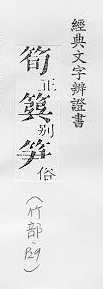 經典文字辨證書
筍正别笋俗
(竹部·P29)